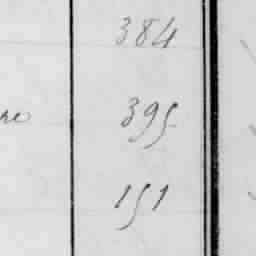 384
395
151